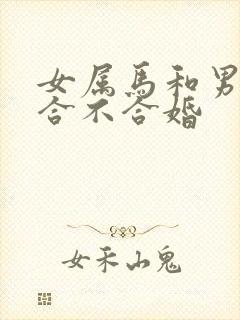 女属马和男
合不合婚
女禾山鬼